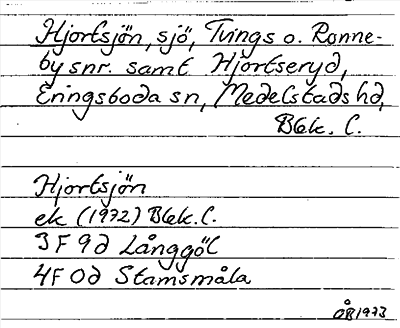 Hjortsjön, sjö, Tvings o. Ronne-
by snr. samt Hjortseryd,
Eringsboda sn, Medelstads hd,
Blek. l.
Hjortsjön
ek (1972) Blek. l.
3F 9d Långgöl
4F 0d Stamsmåla
ÖB 1973